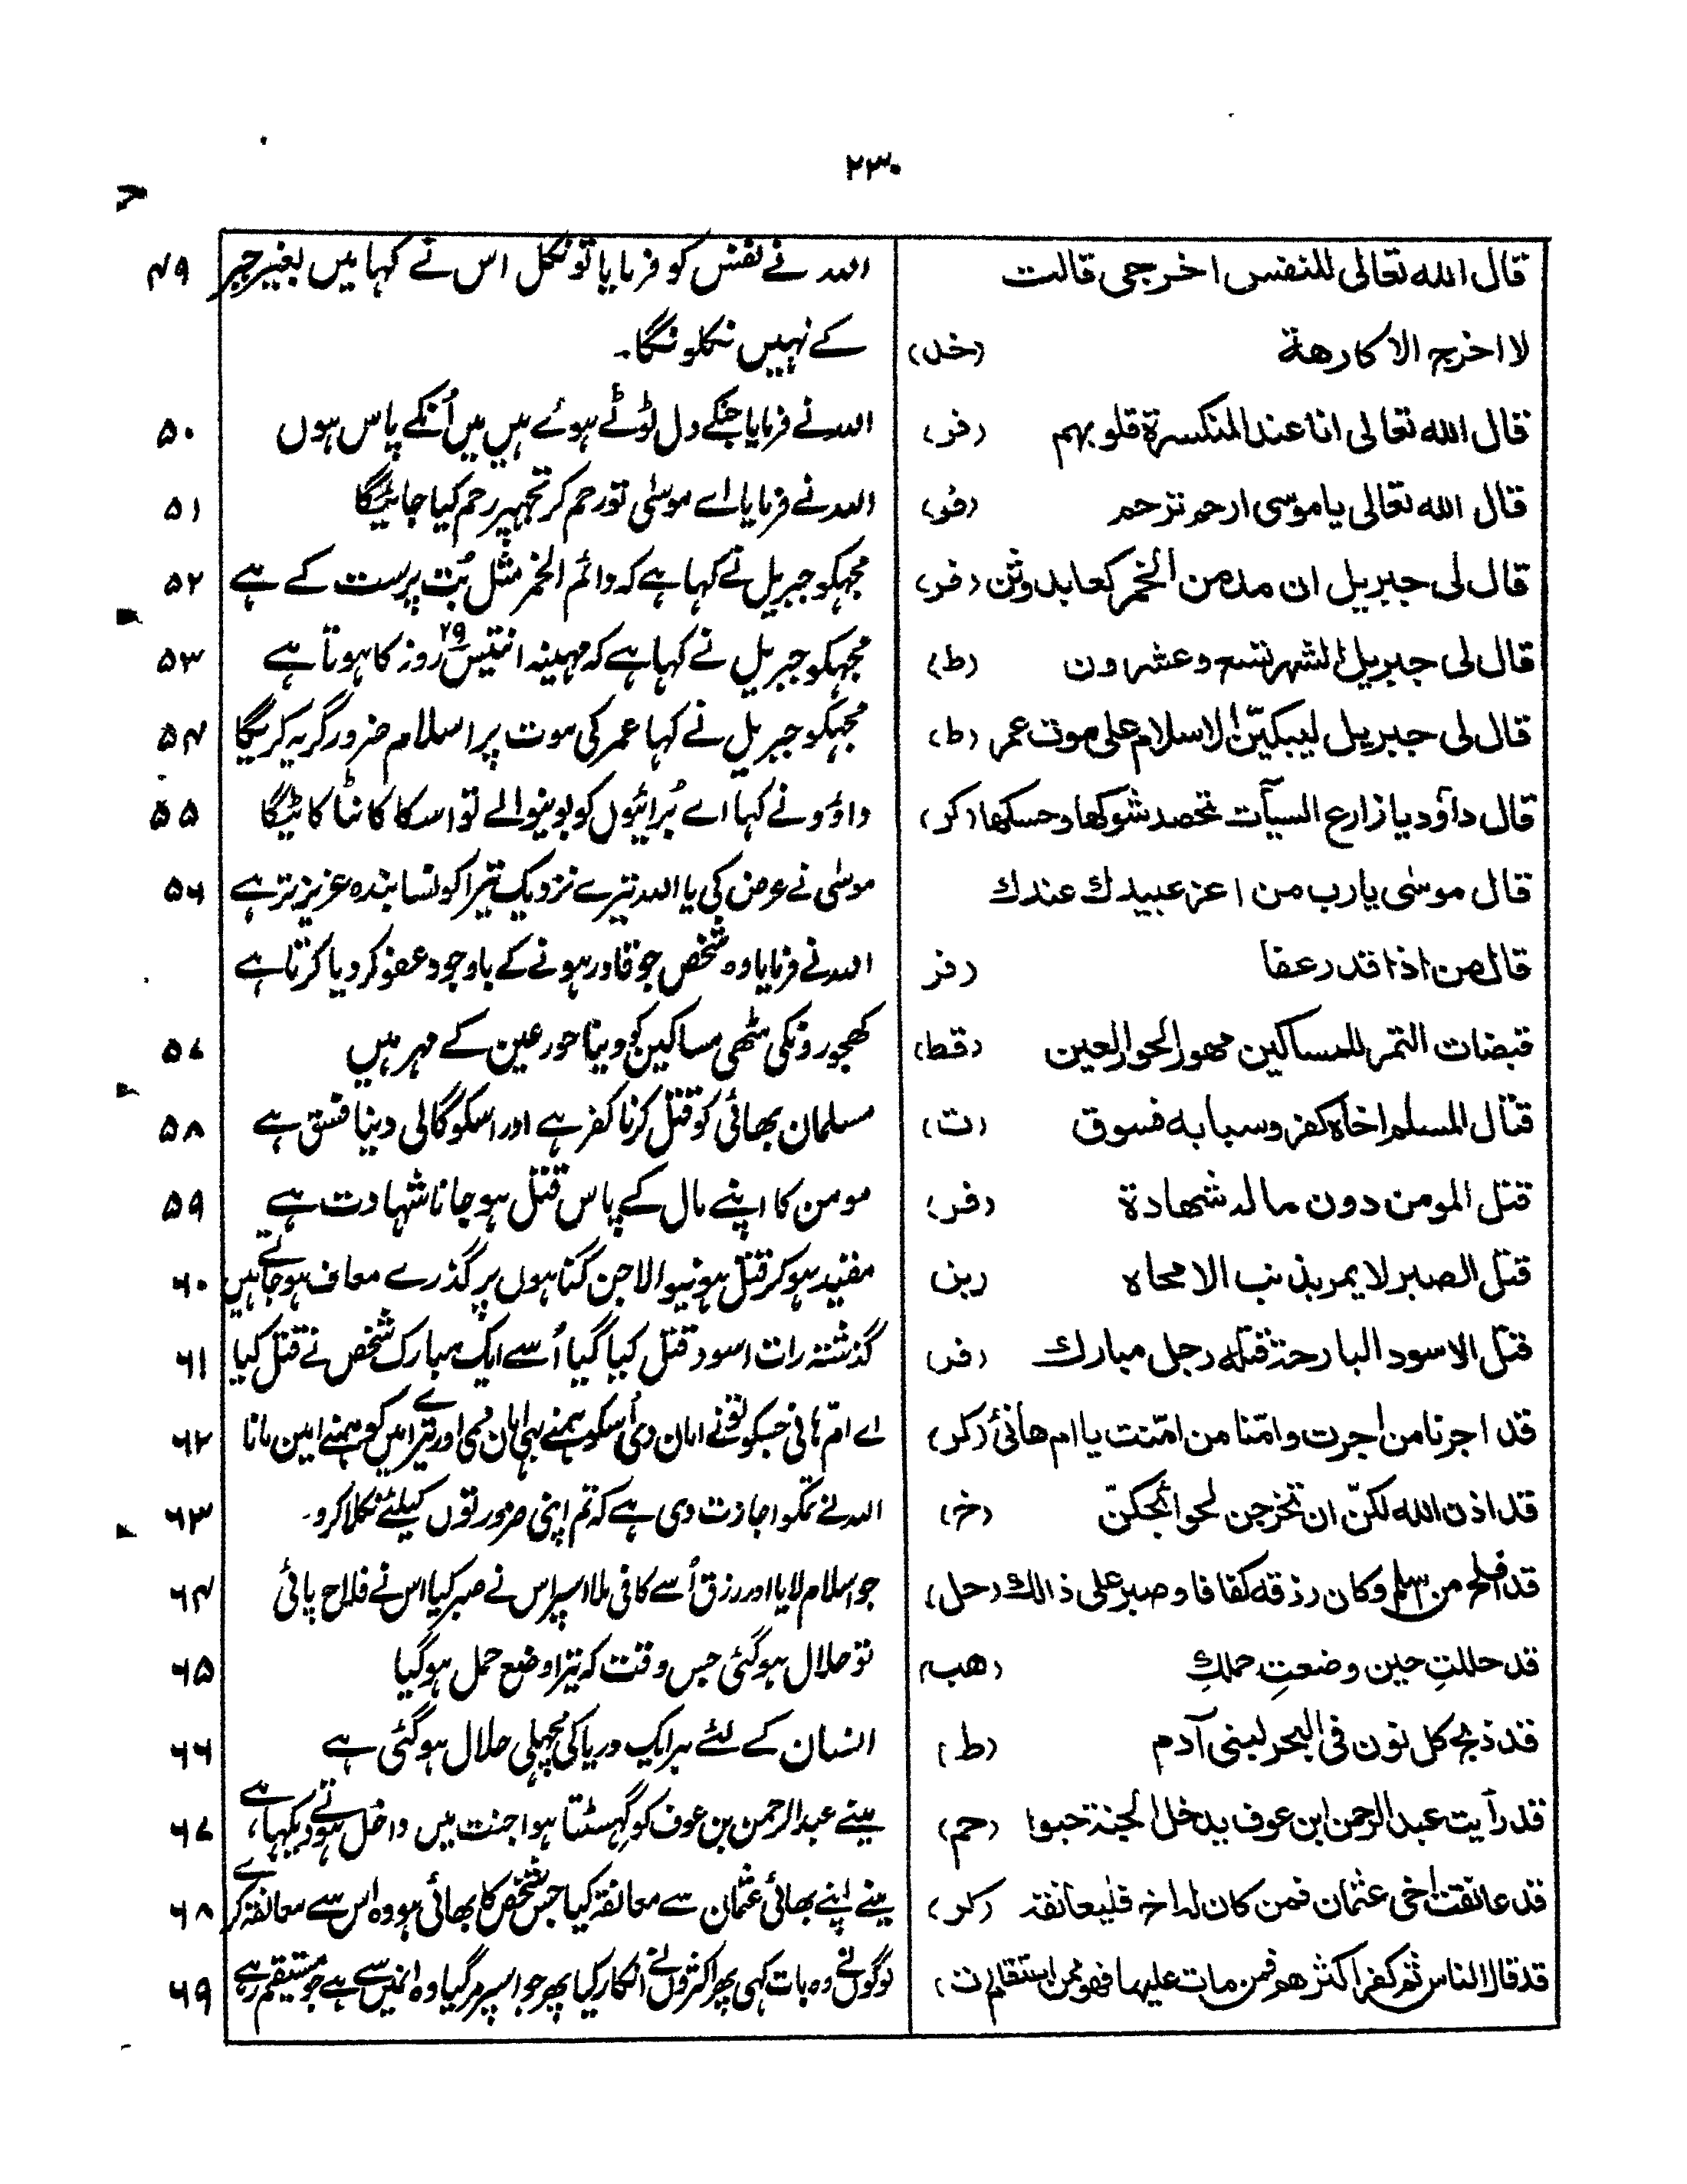 ۲۳۰
قال الله تعالى للنفس اخرجی قالت الله نے نفس کو فرمایا تو نکل اس نے کہا میں بغیر جبر ۴۹
لا اخرج الا کارهة (خل) کے نہیں نکلونگا۔
قال الله تعالى انا عند المنكسرة قلوبهم (فر) الله نے فرمایا جنکے دل ٹوٹے ہوئے ہیں میں اُنکے پاس ہوں ۵۰
قال الله تعالى یا موسی ارحم ترحم (فر) الله نے فرمایا اے موسٰی تو رحم کر تجہپر رحم کیا جائیگا ۵۱
قال لی جبریل ان مدمن الخمر کعابد وثن (فر) مجہکو جبریل نے کہا ہے کہ دائم الخمر مثل بُت پرست کے ہے ۵۲
قال لی جبریل الشهر تسع وعشرون (ط) مجہکو جبریل نے کہا ہے کہ مہینہ انتیس ۲۹ روز کا ہوتا ہے ۵۳
قال لی جبریل لیبکینّ الاسلام علی موت عمر (ط) مجہکو جبریل نے کہا عمر کی موت پر اسلام ضرور گریہ کریگا ۵۴
قال داؤد یا زارع السیآت تحصد شوکها وحسکها (کر) داؤد نے کہا اے بُرائیوں کو بونیوالے تو اسکا کانٹا کاٹیگا ۵۵
قال موسٰی یارب من اعز عبیدك عندك موسٰی نے عرض کی یا الله تیرے نزدیک تیرا کونسا بندہ عزیز تر ہے ۵۶
قال من اذا قدر عفا (فر الله نے فرمایا وہ شخص جو قادر ہونے کے باوجود عفو کر دیا کرتا ہے
قبضات التمر للمساکین مهور الحور العین (قط) کھجورونکی مٹھی مساکین کو دینا حور عین کے مہر ہیں ۵۷
قتال المسلم اخاه کفر وسبابه فسوق (ت) مسلمان بھائی کو قتل کرنا کفر ہے اور اسکو گالی دینا فسق ہے ۵۸
قتل المومن دون ماله شهادة (فر) مومن کا اپنے مال کے پاس قتل ہو جانا شہادت ہے ۵۹
قتل الصبر لا یمر بذنب الا محاه (بز) مقید ہو کر قتل ہونیوالا جن گناہوں پر گذرے معاف ہو جاتے ہیں ۶۰
قتل الاسود البارحة قتله رجل مبارك (فر) گذشتہ رات اسود قتل کیا گیا اُسے ایک مبارک شخص نے قتل کیا ۶۱
قد اجرنا من اجرت وامّنا من امّنت یا ام هانئ (کر) اے امّ ہانی جسکو تونے امان دی اُسکو ہمنے بہی امان دی اور تیرے امیں کو ہمنے امین مانا ۶۲
قد اذن الله لکنّ ان تخرجن لحوائجکنّ (خ) الله نے تمکو اجازت دی ہے کہ تم اپنی ضرورتوں کیلئے نکلا کرو۔ ۶۳
قد افلح من اسلم وکان رزقه کفافا وصبر علی ذالك (حل) جو اسلام لایا اور رزق اُسے کافی ملا اسپر اس نے صبر کیا اس نے فلاح پائی ۶۴
قد حللتِ حین وضعتِ حملكِ (هب) تو حلال ہو گئی جس وقت کہ تیرا وضع حمل ہو گیا ۶۵
قد ذبح کل نون فی البحر لبنی آدم (ط) انسان کے لئے ہر ایک دریا کی مچہلی حلال ہو گئی ہے ۶۶
قد رأیت عبد الرحمن ابن عوف یدخل الجنة حبوا (حم) مینے عبد الرحمن بن عوف کو گہسٹتا ہوا جنت میں داخل ہوتے دیکہا ہے، ۶۷
قد عانقت اخی عثمان فمن کان له اخ فلیعانقه (کر) مینے اپنے بھائی عثمان سے معانقہ کیا جس شخص کا بھائی ہو وہ اس سے معانقہ کرے ۶۸
قد قال الناس ثم کفر اکثرهم فمن مات علیها فهو ممن استقام (ت) لوگوں نے وہ بات کہی پھر اکثروں نے انکار کیا پھر جو اسپر مر گیا وہ انمیں سے ہے جو مستقیم رہے ۶۹